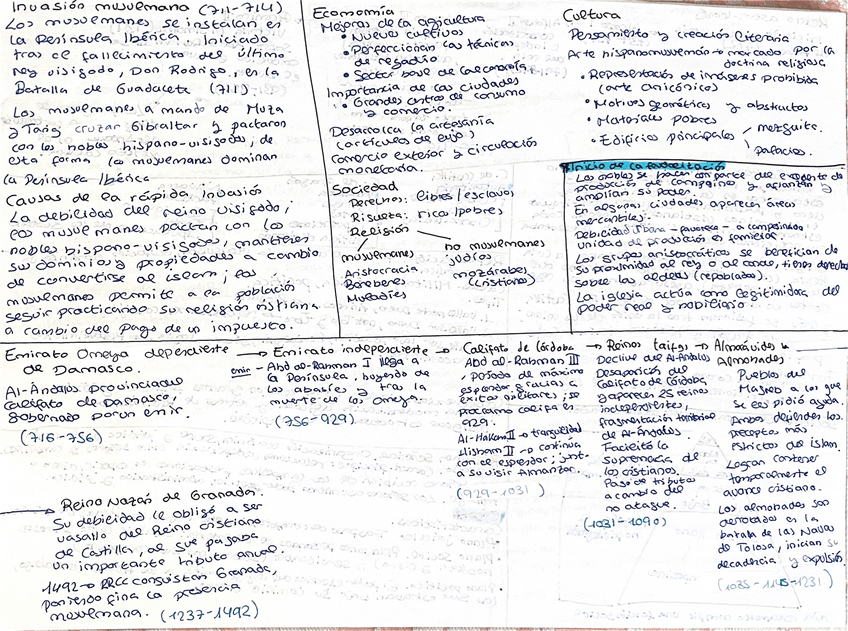 Invasión musulmana (711-714)
Los musulmanes se instalan en
la Península Ibérica. Iniciado
tras el fallecimiento del último
rey visigodo, Don Rodrigo, en la
Batalla de Guadalete (711).
Los musulmanes a mando de Muza
y Tariq cruzar Gibraltar y pactaron
con los nobles hispano-visigodos, de
esta forma los musulmanes dominan
la Península Ibérica
Causas de la rápida invasión
La debilidad del reino visigodo,
los musulmanes pactan con los
nobles hispano-visigodos, mantienen
su dominio y propiedades a cambio
de convertirse al islam; los
musulmanes permite a la población
seguir practicando su religión cristiana
a cambio del pago de un impuesto.
Economía
Mejoras de la agricultura
• Nuevos cultivos
• Perfeccionan las técnicas
de regadío
• Sector base de la economía
Importancia de las ciudades
• Grandes centros de consumo
y comercio.
Desarrolla la artesanía
(artículos de lujo)
Comercio exterior y circulación
monetaria.
Sociedad
Derechos: libres/esclavos
Riqueza: ricos/pobres
Religión
musulmanes
Aristocracia
Bereberes
Muladíes
no musulmanes
judíos
mozárabes
(cristianos)
Cultura
Pensamiento y creación literaria
Arte hispanomusulmán → marcado por la
doctrina religiosa
• Representación de imágenes prohibida
(arte anicónico)
• Motivos geométricos y abstractos
• Materiales pobres
• Edificios principales
mezquita.
palacios.
Inicio de la feudalización
Los nobles se hacen con parte del excedente de
producción de campesino y afianzan y
amplían su poder.
En algunas ciudades aparecen áreas
mercantiles.
Debilidad urbana - favorece - a campesinado
unidad de producción es familiar.
Los grupos aristocráticos se benefician de
su proximidad al rey o al conde, tienen derechos
sobre las aldeas (repoblados).
La iglesia actúa como legitimidora del
poder real y nobiliario.
Emirato Omeya dependiente
de Damasco.
Al-Ándalus provincia del
Califato de Damasco,
gobernado por un emir.
(716-756)
→ Emirato independiente
emir - Abd al-Rahman I llega a
la Península, huyendo de
los abasíes y tras la
muerte de los Omeya.
(756-929)
→ Califato de Córdoba
Abd al-Rahman III
, período de máximo
esplendor gracias a
éxitos militares; se
proclamo califa en
929.
Al-Hakam II → tranquilidad
Hisham II → continúa
con el esplendor; junto
a su visir Almanzor.
(929-1031)
→ Reinos taifas
Declive de Al-Ándalus
Desaparición del
Califato de Córdoba
y aparecen 25 reinos
independientes,
fragmentación territorial
de Al-Ándalus.
Facilitó la
supremacía de
los cristianos.
Pago de tributos
a cambio del
no ataque.
(1031-1090)
→ Almorávides y
Almohades
Pueblos del
Magreb a los que
se les pidió ayuda.
Ambos defienden los
preceptos más
estrictos del islam.
Logran contener
temporalmente el
avance cristiano.
Los almohades son
derrotados en la
batalla de las Navas
de Tolosa, inician su
decadencia y expulsión.
(1085-1145-1231)
→ Reino Nazarí de Granada.
Su debilidad le obligó a ser
vasallo del Reino cristiano
de Castilla, al que pagaba
un importante tributo anual.
1492 → RRCC conquistan Granada,
poniendo fin a la presencia
musulmana. (1237-1492)